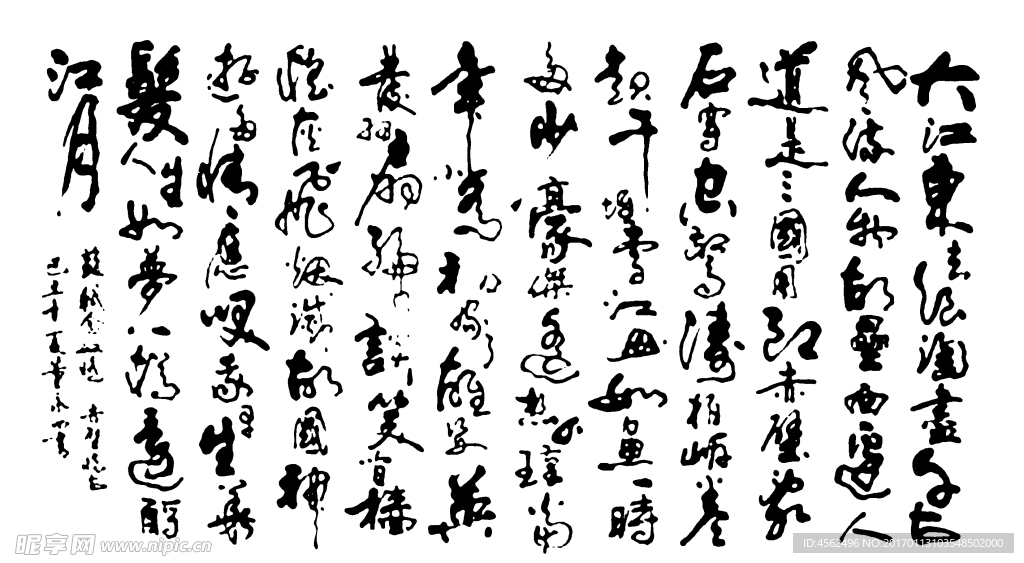 大江東去浪淘盡千古
風流人物故壘西邊人
道是三國周郎赤壁亂
石穿空驚濤拍岸卷
起千堆雪江山如畫一時
多少豪傑遙想公瑾當
年小喬初嫁了雄姿英
發羽扇綸巾談笑間檣
櫓灰飛烟滅故國神
游多情應咲我早生華
髮人生如夢一樽還酹
江月
蘇軾念奴嬌 赤壁懷古
己丑十
昵享网 www.nipic.cn
ID:4562496 NO:20170113103548502000